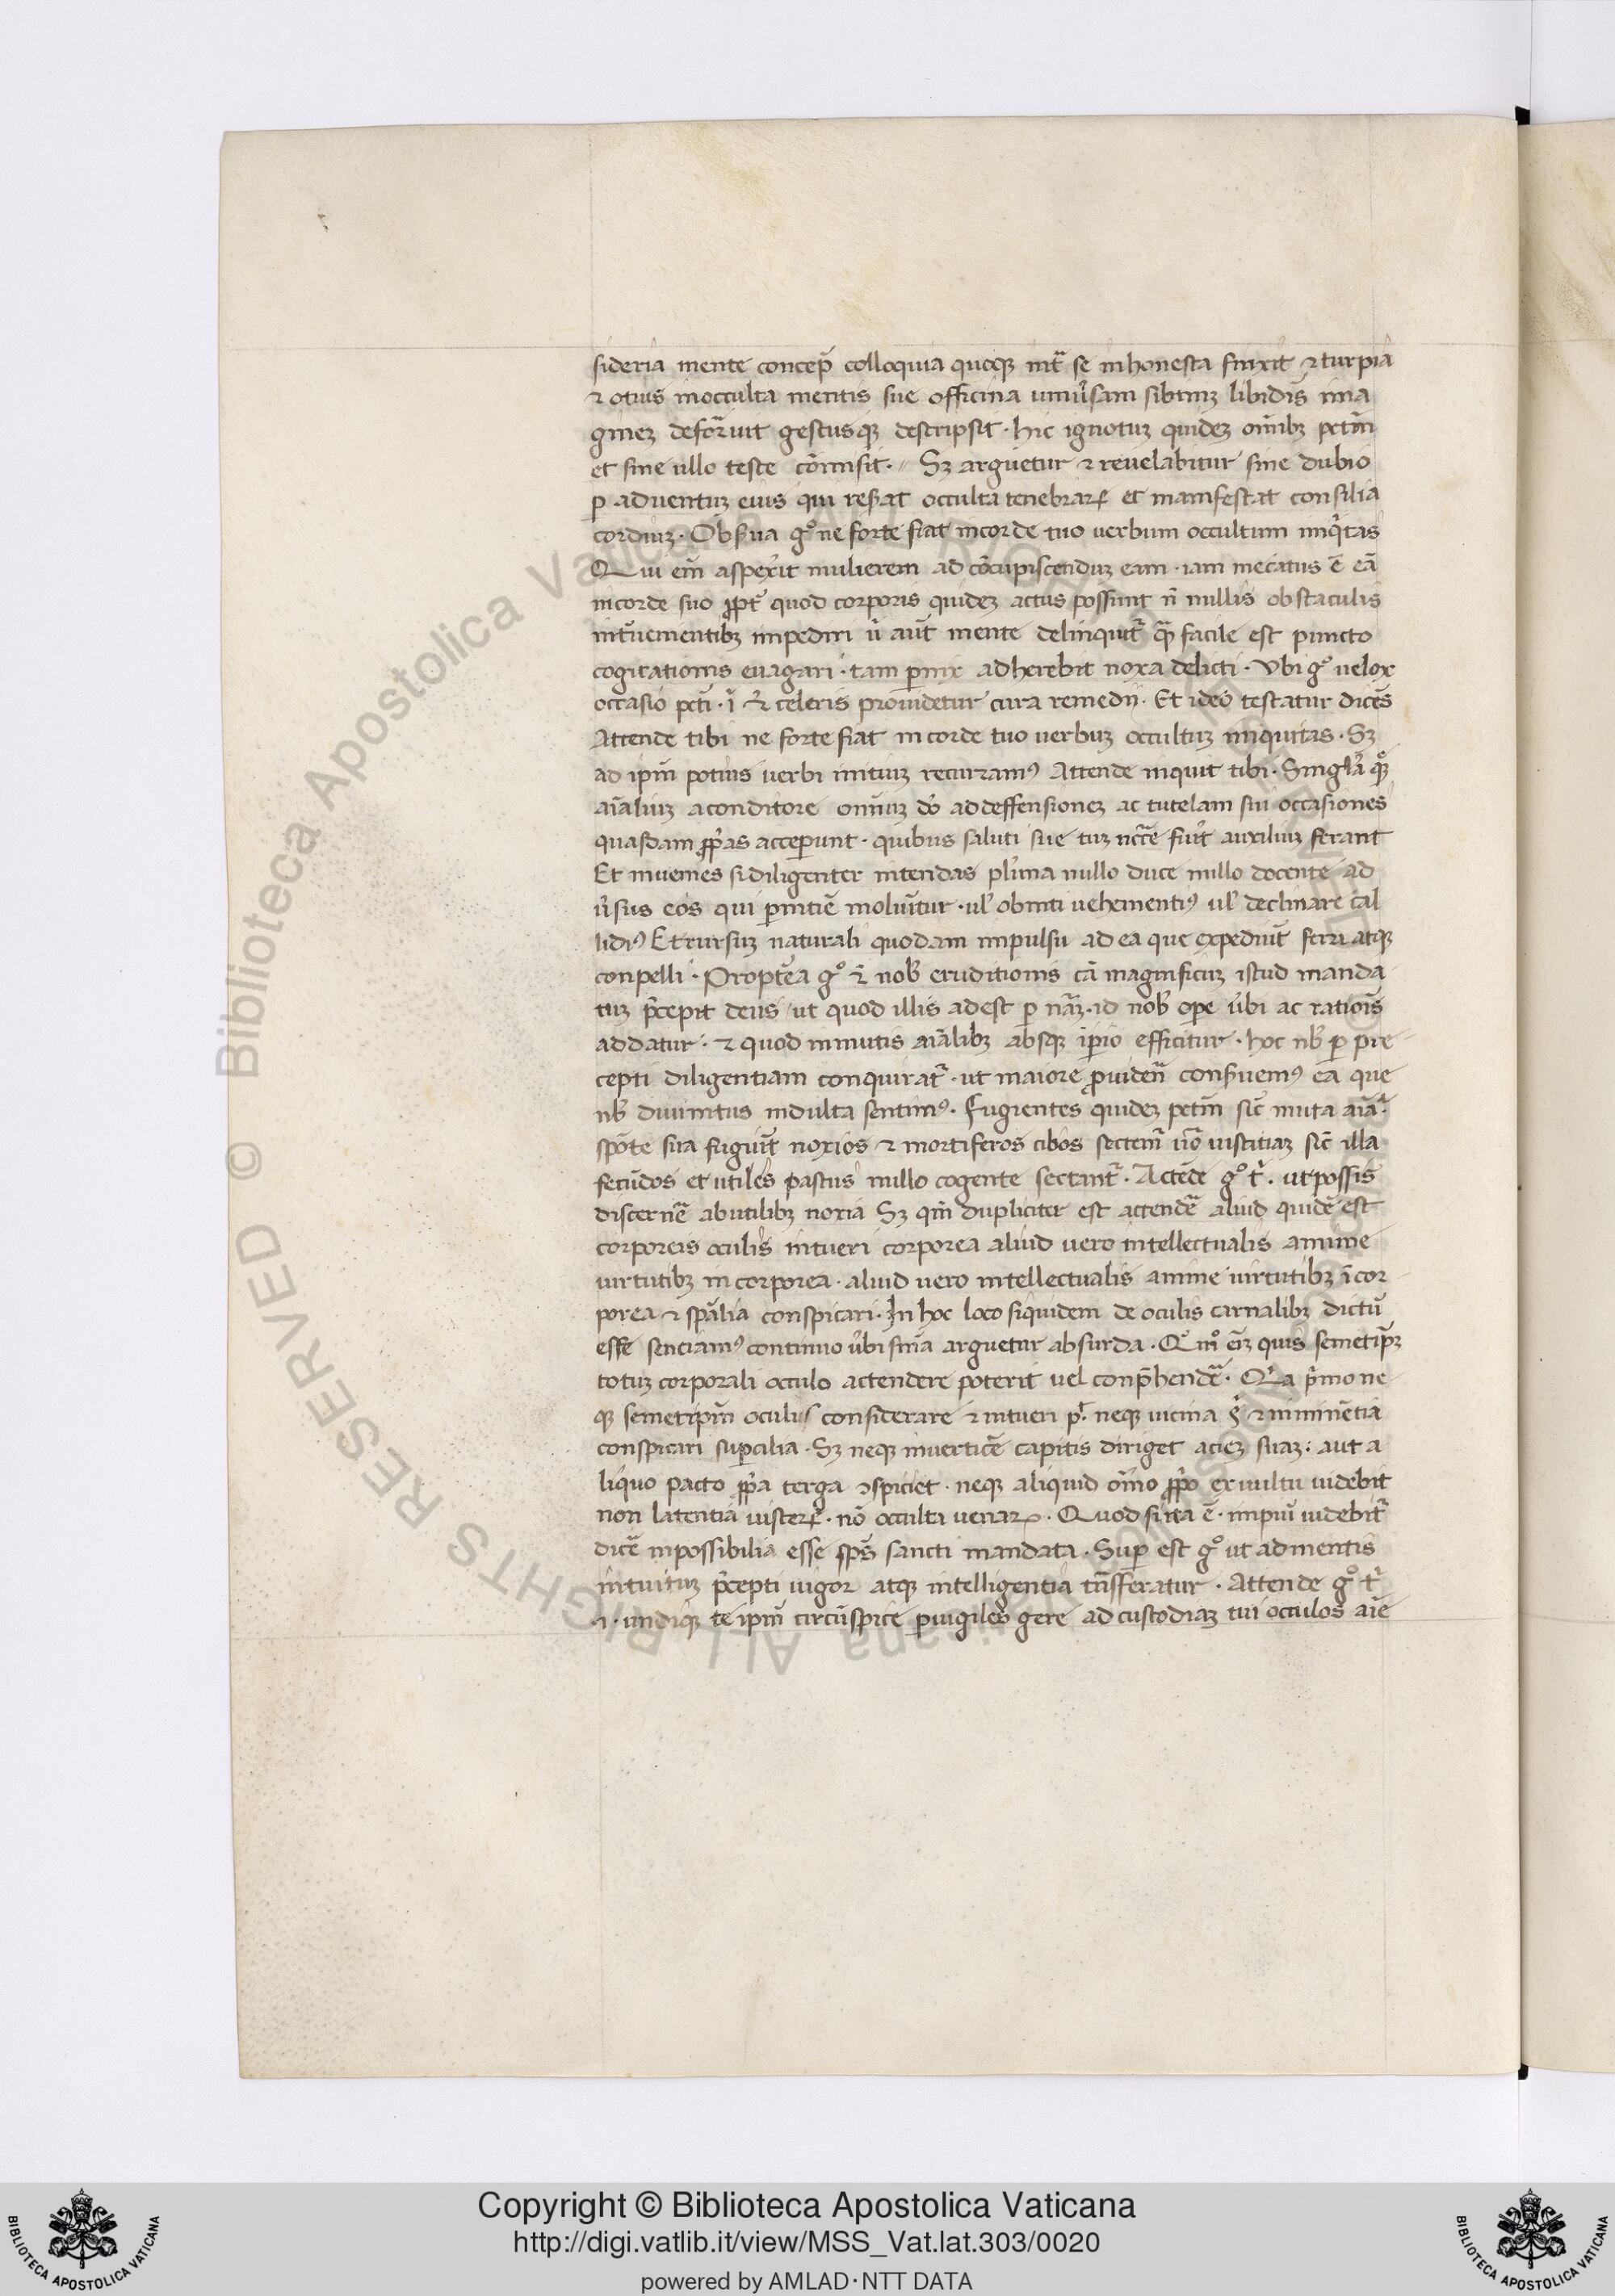 sideria mente concep̃ colloquia quoque int̃ se inhonesta finxit ⁊ turpia
⁊ otius inocculta mentis sue officina uniũsam sibimꝫ libidĩs ima
gineꝫ deforãuit gestusqꝫ descripsit · hic ignotuꝫ quideꝫ om̃ibꝫ pctm̃
et sine ullo teste cõmisit · Sꝫ arguetur ⁊ reuelabitur sine dubio
ꝑ aduentuꝫ eius qui reserat occulta tenebrarꝝ et manifestat consilia
cordiuꝫ · Obserua gͦ ne forte fiat incorde tuo verbum occultum iniqͥtas
Qui em̃ aspexit mulierem ad cõcupiscenduꝫ eam · iam mecatus ē eã
incorde suo ꝓpt̃ quod corporis quideꝫ actus possunt ñ nullis obstaculis
int̃uenientibꝫ impediri ů aut̃ mente delinquit̃ quã facile est puncto
cogitationis euagari · tam ꝑnix adherebit noxa delicti · Vbi gͦ uelox
occasio pcti · ĩ ⁊ celeris prouidetur cura remedij · Et ideo testatur dicẽs
Attende tibi ne forte fiat in corde tuo uerbuꝫ occultuꝫ iniquitas · Sꝫ
ad ipm̃ potius uerbi initiuꝫ recurramꝰ Attende inquit tibi · Singl̃a qꝫ
aĩaliuꝫ aconditore omniuꝫ dõ addeffensioneꝫ ac tutelam sui occasiones
quasdam ꝓpͥas acceperunt · quibus saluti sue tuꝫ nc̃ẽ fuit auxiliuꝫ ferant
Et inuenies si diligenter intendas plͥima nullo duce nullo docente ad
ůsus eos qui ꝑnitiẽ moliũtur · ul̃ obniti uehementiꝰ ul̃ declinare cal
lidiꝰ Et rursuꝫ naturali quodam impulsu ad ea que expediũt ferri atqꝫ
conpelli · Propt̃ea gͦ ⁊ nob̃ eruditionis cã magnificuꝫ istud manda
tuꝫ p̃cepit deus ut quod illis adest ꝑ nãꝫ · id nob̃ ope ůbi ac ratiõis
addatur · ⁊ quod inmutis aĩalibꝫ absqꝫ ĩperio efficitur · hoc nb̃ ꝑ pre
cepti diligentiam conquirat̃ · ut maiore ꝓuidẽn conseruemꝰ ea que
nb̃ diuinitus indulta sentimꝰ · Fugientes quideꝫ pctm̃ sic̃ muta aĩa
spõte sua fugiũt noxios ⁊ mortiferos cibos sectem̃ ũo iustitiaꝫ sic̃ illa
fecũdos et utiles pastus nullo cogente sectant̃ · Actẽde gͦ tͥ · ut possis
discernẽ abutilibꝫ noxia Sꝫ qm̃ dupliciter est actendẽ aliud quidẽ est
corporeis oculis intueri corporea aliud vero intellectualis anime
uirtutibꝫ incorporea · aliud vero intellectualis anime uirtutibꝫ ĩcor
porea ⁊ spũalia conspicari · In hoc loco siquidem de oculis carnalibꝫ dictũ
esse senciamꝰ continuo ůbi sñia arguetur absurda · Qͦmͦ em̃ quis semetip̃ꝫ
totuꝫ corporali occulo actendere poterit uel conp̃hendẽ · Qͥa pͥmo ne
qꝫ semetipm̃ oculus considerare ⁊ intueri pt̃ · neqꝫ uicina ⁊ inminẽtia
conspicari suꝑcilia · Sꝫ neqꝫ inuerticẽ capitis diriget acieꝫ suaꝫ · aut a
liquo pacto ꝓpͥa terga ꝯspiciet · neqꝫ aliquid om̃o ꝓpͥo ex uultu uidebit
non latentia uiscerꝝ · nõ occulta uenarꝝ · Quod si ita ẽ · impiũ uidebit̃
dicẽ inpossibilia esse sp̃s sancti mandata · Suꝑ est gͦ ut admentis
intuituꝫ p̃cepti uigor atqꝫ intelligentia trãsferatur · Attende gͦ tͥ
·i· undiqꝫ te ipm̃ circũspice ꝑuigiles gere ad custodiaꝫ tui occulos aĩe
© Biblioteca Apostolica Vaticana ALL RIGHTS RESERVED
Copyright © Biblioteca Apostolica Vaticana
http://digi.vatlib.it/view/MSS_Vat.lat.303/0020
powered by AMLAD·NTT DATA
BIBLIOTECA APOSTOLICA VATICANA
BIBLIOTECA APOSTOLICA VATICANA